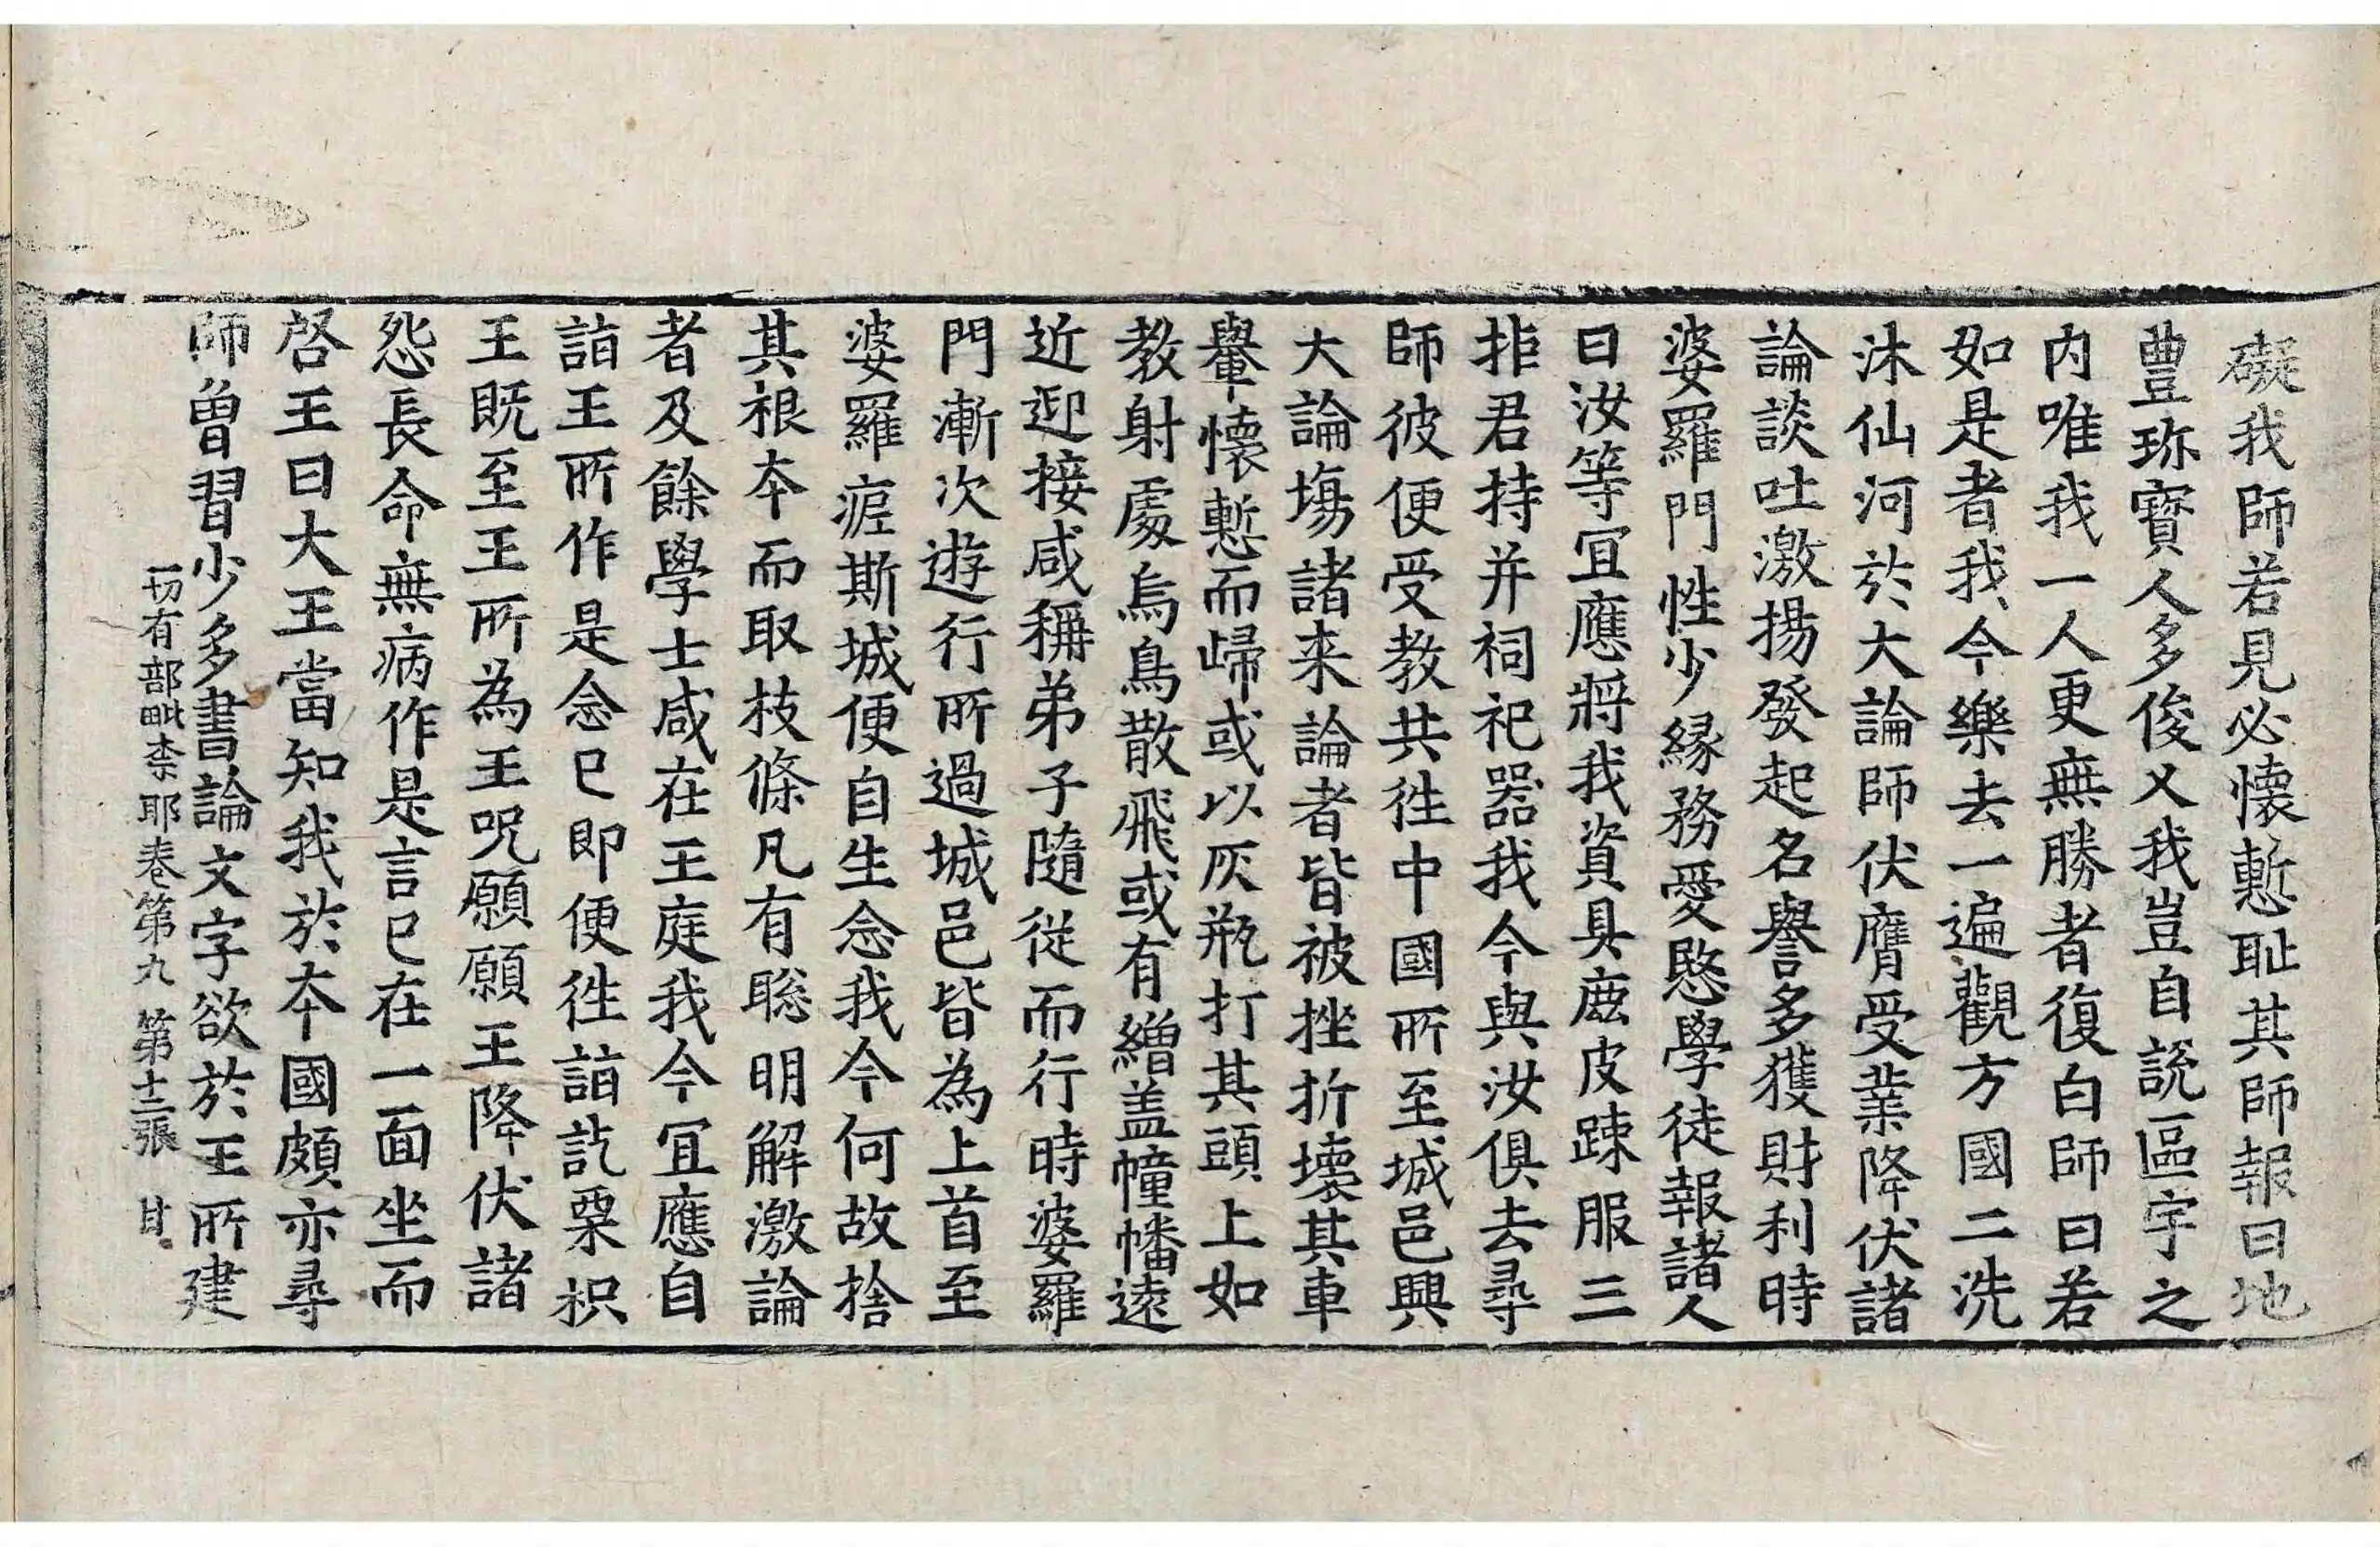 礙我師若見必懷慙耻其師報曰地
豊珎寳人多俊乂我豈自說區宇之
内唯我一人更無勝者復白師曰若
如是者我今樂去一遍觀方國二洗
沐仙河於大論師伏膺受業降伏諸
論談吐激揚發起名譽多獲財利時
婆羅門性少縁務愛愍學徒報諸人
曰汝等冝應將我資具鹿皮踈服三
拒君持并祠祀器我今與汝俱去尋
師彼便受教共徃中國所至城邑興
大論塲諸来論者皆被挫折壞其車
轝懷慙而歸或以灰瓶打其頭上如
教射處烏鳥散飛或有繒盖幢幡遠
近迎接咸稱弟子隨從而行時婆羅
門漸次遊行所過城邑皆為上首至
婆羅痆斯城便自生念我今何故捨
其根本而取枝條凡有聡明解激論
者及餘學士咸在王庭我今冝應自
詣王所作是念已即便徃詣訖栗枳
王既至王所為王呪願願王降伏諸
怨長命無病作是言已在一面坐而
啓王曰大王當知我於本國頗亦尋
師曽習少多書論文字欲於王所建
一切有部毗柰耶卷第九 第十二張 甘